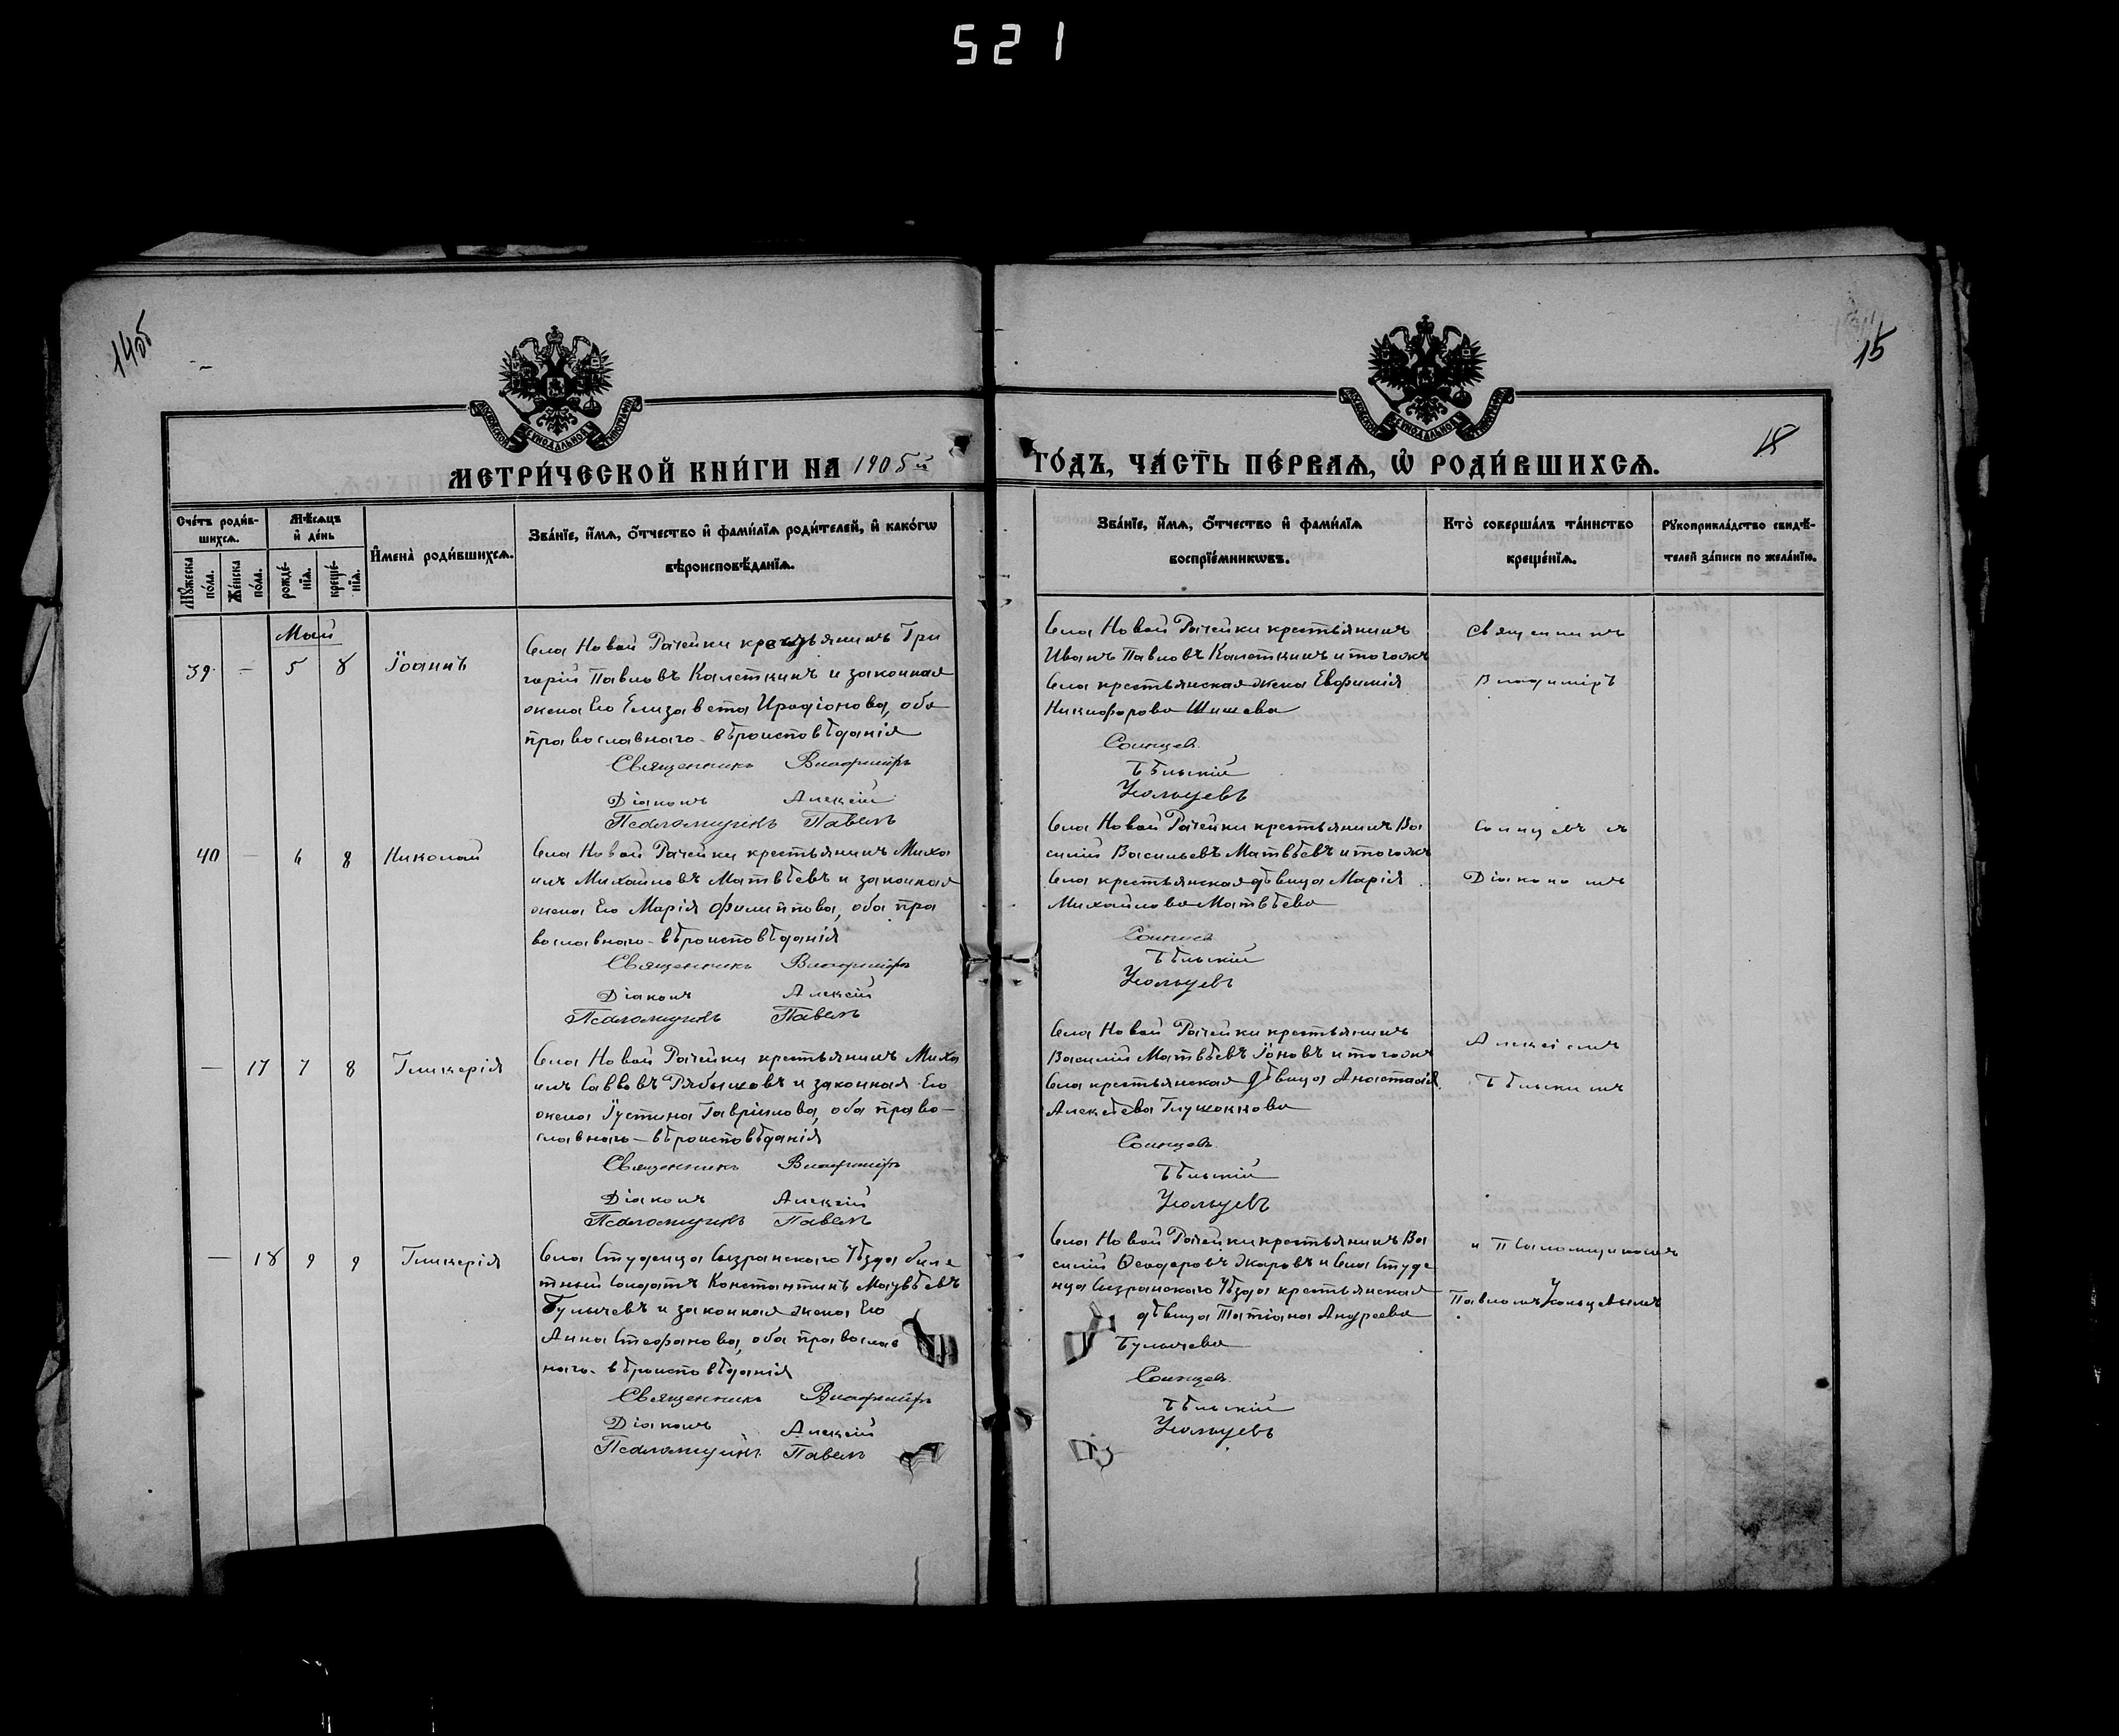 521
14об
15
15
МОСКОВСКОЙ СѴНОДАЛЬНОЙ ТИПОГРАФІИ
МОСКОВСКОЙ СѴНОДАЛЬНОЙ ТИПОГРАФІИ
МЕТРИ́ЧЕСКОЙ КНИ́ГИ НА 1905й
ГО́ДЪ, ЧА́СТЬ ПЕ́РВАѦ, Ѡ҆ РОДИ́ВШИХСѦ.
Сче́тъ роди́в-
шихсѧ.
Мꙋ́жеска по́ла.
Же́нска по́ла.
Мѣ́сѧцъ
и҆ де́нь
рожде́-нїѧ.
креще́-нїѧ.
И҆мена̀ роди́вшихсѧ.
Зва́нїе, и҆́мѧ, ѻ҆́тчество и҆ фами́лїѧ роди́телей, и҆ како́гѡ
вѣроисповѣ́данїѧ.
Зва́нїе, и҆́мѧ, ѻ҆́тчество и҆ фами́лїѧ
воспрїе́мникѡвъ.
Кто̀ соверша́лъ та́инство
креще́нїѧ.
Рꙋкоприкла́дство свидѣ́-
телей за́писи по жела́нїю.
Май
39. — 5 8 Іоаннъ
Села Новой Рачейки крестьянинъ Гри
горій Павловъ Калеткинъ и законная
жена Его Елизавета Иродіонова, оба
православнаго-вѣроисповѣданія
Священникъ Владиміръ
Діаконъ Алексій
Псаломщикъ Павелъ
Села Новой Рачейки крестьянинъ
Иванъ Павловъ Калеткинъ и тогожъ
Села крестьянская жена Евфимія
Никифорова Шишева
Солнцевъ
Бѣльскій
Усольцевъ
Священникъ
Владиміръ
40 — 6 8 Николай
Села Новой Рачейки крестьянинъ Миха
илъ Михайловъ Матвѣевъ и законная
жена Его Марія Филиппова, оба пра
вославнаго-вѣроисповѣданія
Священникъ Владиміръ
Діаконъ Алексій
Псаломщикъ Павелъ
Села Новой Рачейки крестьянинъ Ва
силій Васильевъ Матвѣевъ и тогожъ
Села крестьянская дѣвица Марія
Михайлова Матвѣева
Солнцевъ
Бѣльскій
Усольцевъ
Солнцевъ съ
Діакономъ
— 17 7 8 Гликерія
Села Новой Рачейки крестьянинъ Миха
илъ Савовъ Рябышовъ и законная Его
жена Іустина Гавріилова, оба право-
славнаго-вѣроисповѣданія
Священникъ Владиміръ
Діаконъ Алексій
Псаломщикъ Павелъ
Села Новой Рачейки крестьянинъ
Василій Матвѣевъ Іоновъ и тогожъ
Села крестьянская дѣвица Анастасія
Алексѣева
Солнцевъ
Бѣльскій
Усольцевъ
Алексіемъ
Бѣльскимъ
— 18 9 9 Гликерія
Села Студенца Сызранскаго Уѣзда биле
тный Солдатъ Константинъ Матвѣевъ
Булычевъ и законная жена Его
Анна Стефанова, оба православ
наго-вѣроисповѣданія
Священникъ Владиміръ
Діаконъ Алексій
Псаломщикъ Павелъ
Села Новой Рачейки крестьянинъ Ва
силій Ѳеодоровъ и Села Студе
нца Сызранскаго Уѣзда крестьянская
дѣвица Татіана Андреева
Булычева
Солнцевъ
Бѣльскій
Усольцевъ
и Псаломщикомъ
Павломъ Усольцевымъ